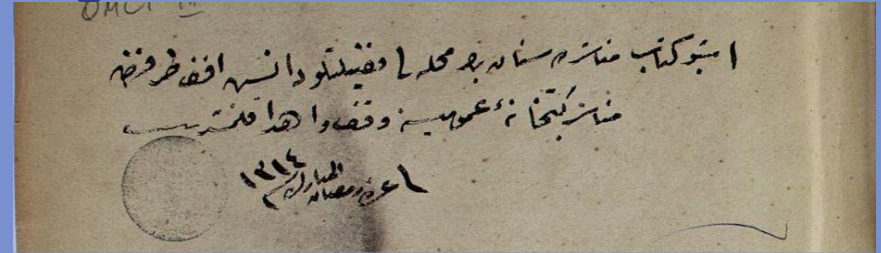 OMCT III
اشبو كتاب مناسترده سنان بك محله لى فضيلتلو دانش افندى طرفندن
مناستر كتبخانهٔ عموميسنه وقف و اهدا قلنمشدر
غره رمضان المبارك ١٣١٤